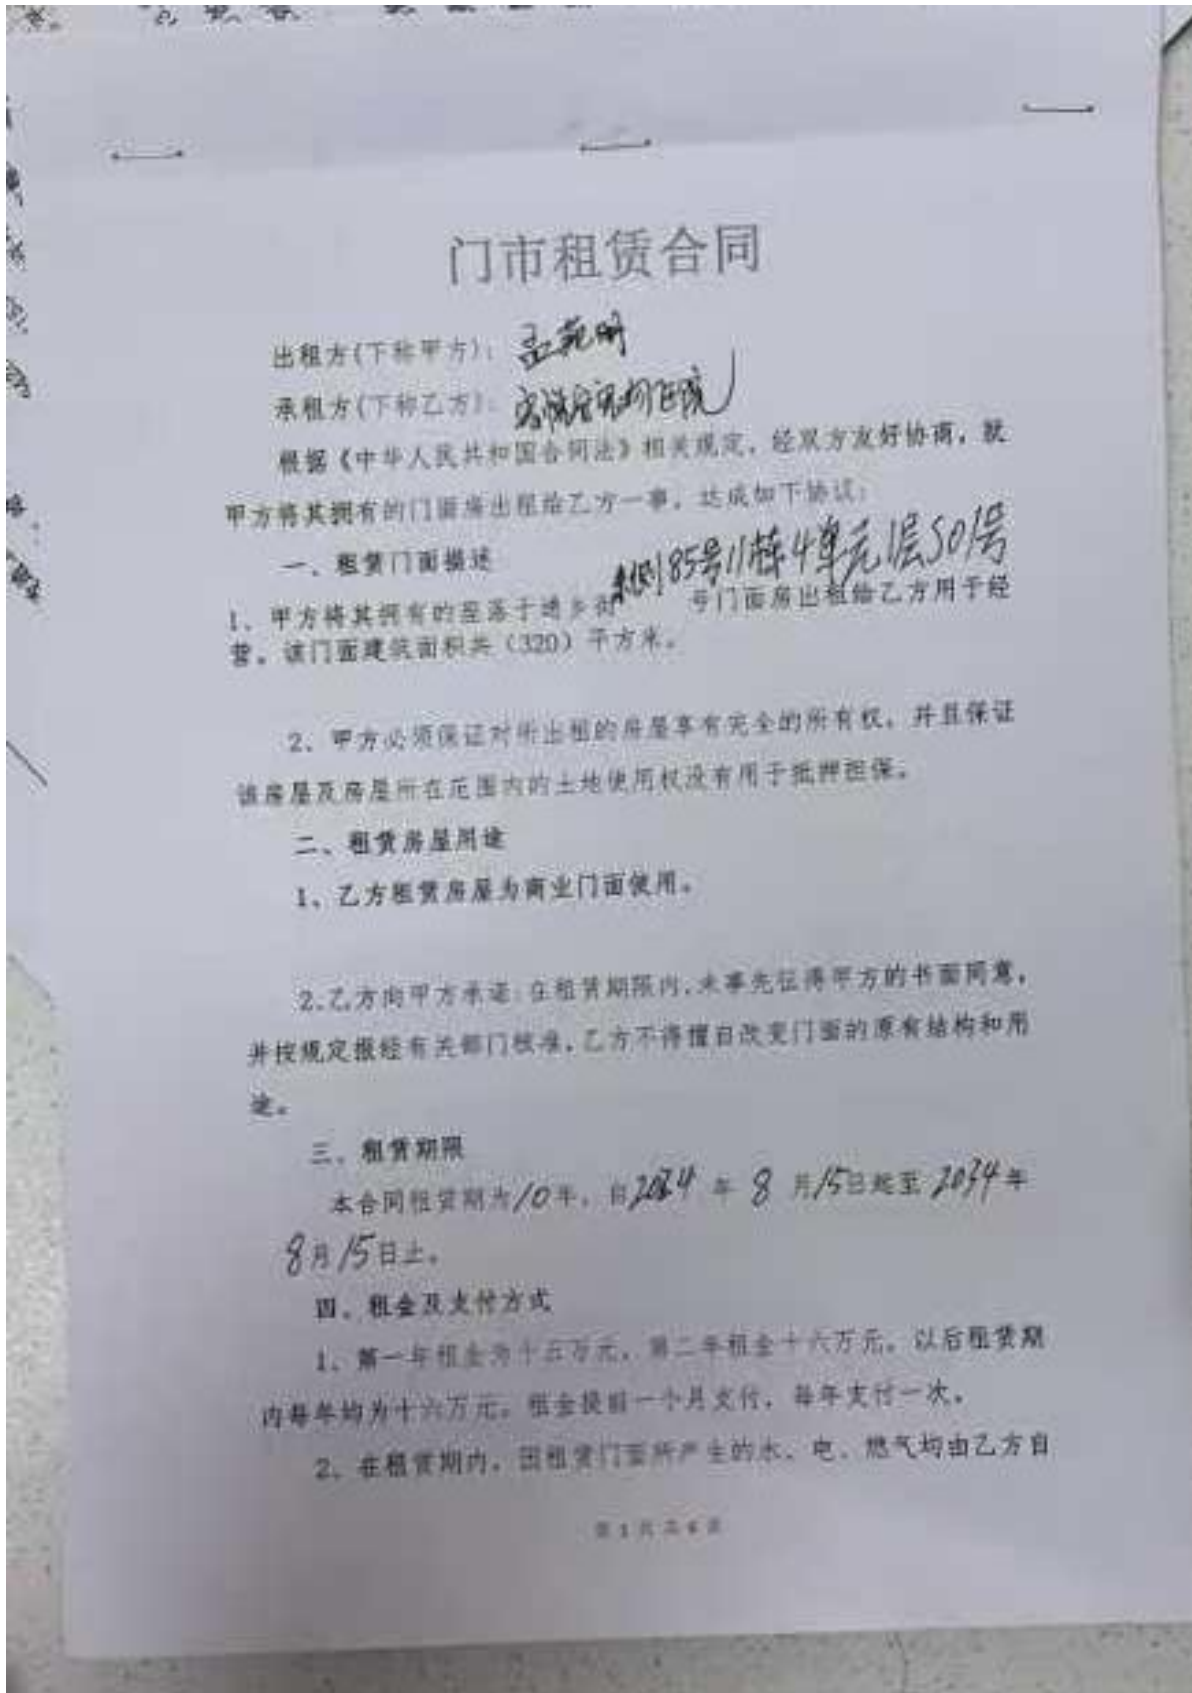 门市租赁合同
出租方(下称甲方):
承租方(下称乙方):
根据《中华人民共和国合同法》相关规定，经双方友好协商，就
甲方将其拥有的门面房出租给乙方一事，达成如下协议:
一、租赁门面描述
侧85号11栋4单元1层501号
1、甲方将其拥有的座落于通乡街 号门面房出租给乙方用于经
营。该门面建筑面积共（320）平方米。
2、甲方必须保证对所出租的房屋享有完全的所有权，并且保证
该房屋及房屋所在范围内的土地使用权没有用于抵押担保。
二、租赁房屋用途
1、乙方租赁房屋为商业门面使用。
2.乙方向甲方承诺:在租赁期限内,未事先征得甲方的书面同意，
并按规定报经有关部门核准,乙方不得擅自改变门面的原有结构和用
途。
三、租赁期限
本合同租赁期为10年，自 年 8 月15日起至 2034年
8月15日止。
四、租金及支付方式
1、第一年租金为十五万元，第二年租金十六万元。以后租赁期
内每年均为十六万元。租金提前一个月支付，每年支付一次。
2、在租赁期内，因租赁门面所产生的水、电、燃气均由乙方自
第 1 页 共 6 页